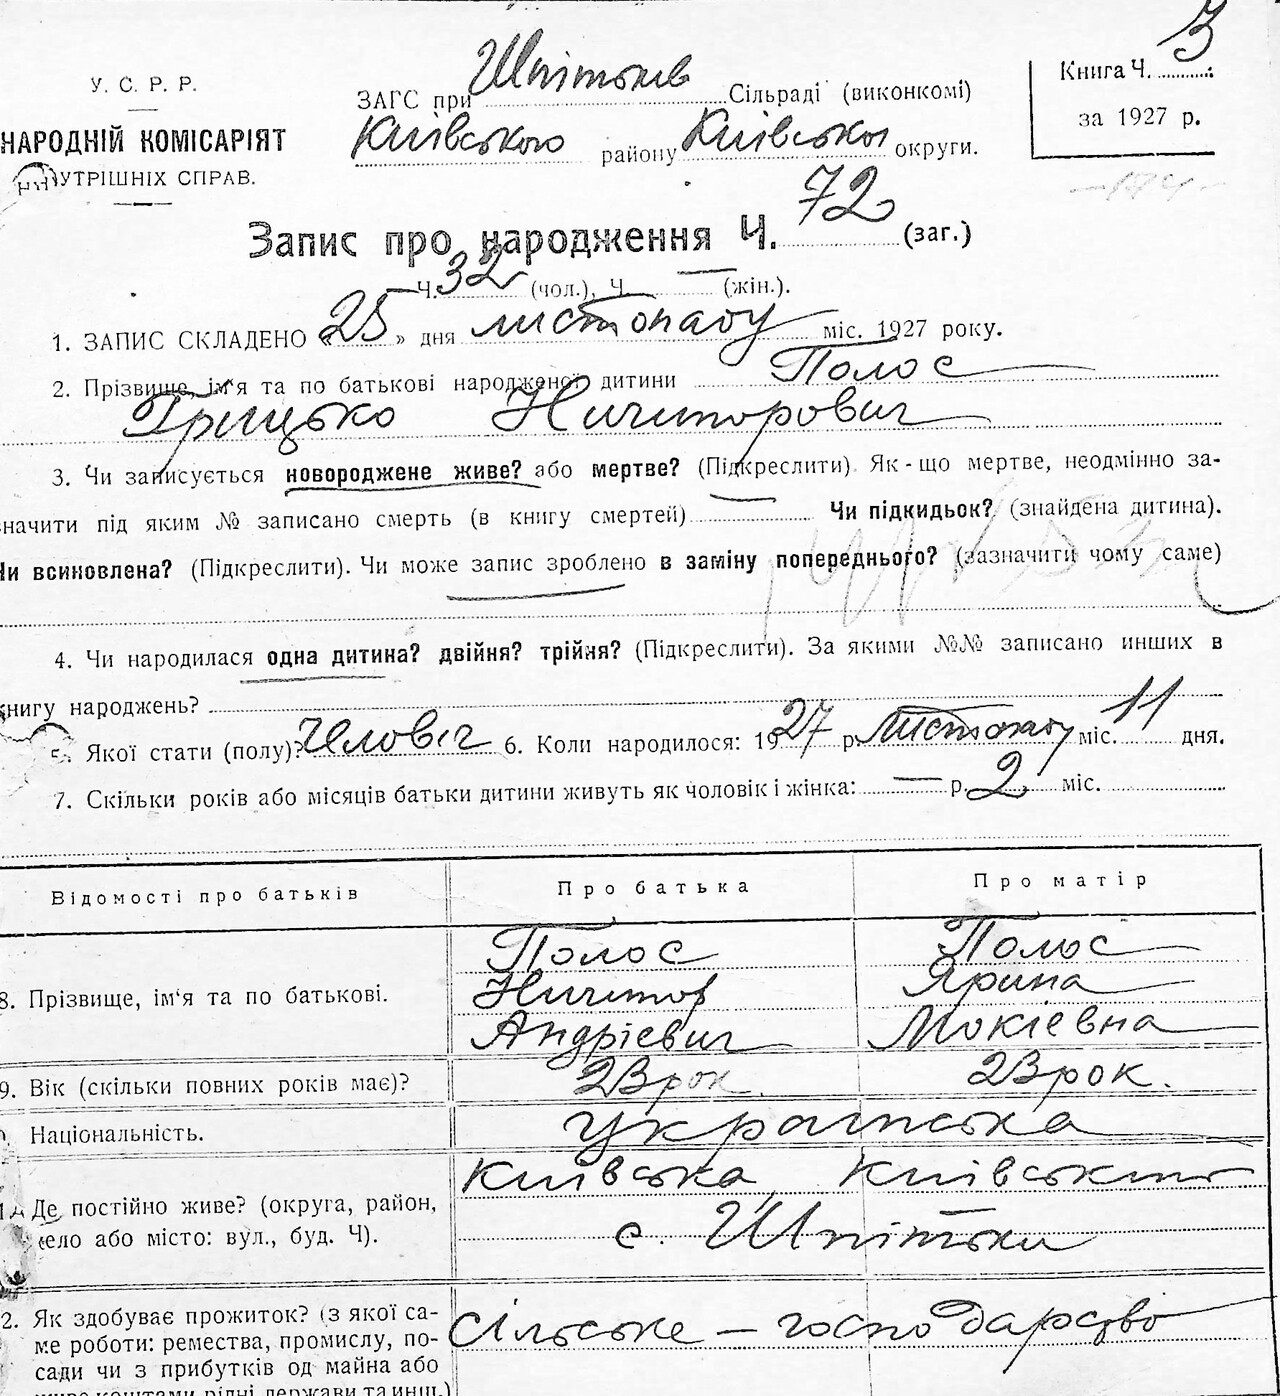 У. С. Р. Р.
НАРОДНІЙ КОМІСАРІЯТ
ВНУТРІШНІХ СПРАВ.
ЗАГС при Шпітьків Сільраді (виконкомі)
Київського району Київської округи.
Книга Ч. 3
за 1927 р.
Запис про народження Ч. 72 (заг.)
Ч. 32 (чол.), Ч. — (жін.).
1. ЗАПИС СКЛАДЕНО «25» дня листопаду міс. 1927 року.
2. Прізвище, ім'я та по батькові народженої дитини Полос
Грицько Ничипорович
3. Чи записується новороджене живе? або мертве? (Підкреслити). Як-що мертве, неодмінно за-
значити під яким № записано смерть (в книгу смертей) — Чи підкидьок? (знайдена дитина).
Чи всиновлена? (Підкреслити). Чи може запис зроблено в заміну попереднього? (зазначити чому саме)
4. Чи народилася одна дитина? двійня? трійня? (Підкреслити). За якими №№ записано инших в
книгу народжень?
5. Якої стати (полу)? Чоловіч 6. Коли народилося: 1927 р. Листопаду міс. 11 дня.
7. Скільки років або місяців батьки дитини живуть як чоловік і жінка: — р. 2 міс.
Відомості про батьків Про батька Про матір
8. Прізвище, ім'я та по батькові.
Полос Полос
Ничипор Ярина
Андрієвич Мокієвна
9. Вік (скільки повних років має)? 23 рок 23 рок.
Національність. Українська
Де постійно живе? (округа, район,
село або місто: вул., буд. Ч).
Київська Київський
с. Шпітьки
2. Як здобуває прожиток? (з якої са-
ме роботи: ремества, промислу, по-
сади чи з прибутків од майна або
живе коштами рідні держави та инш.)
Сільське – господарство